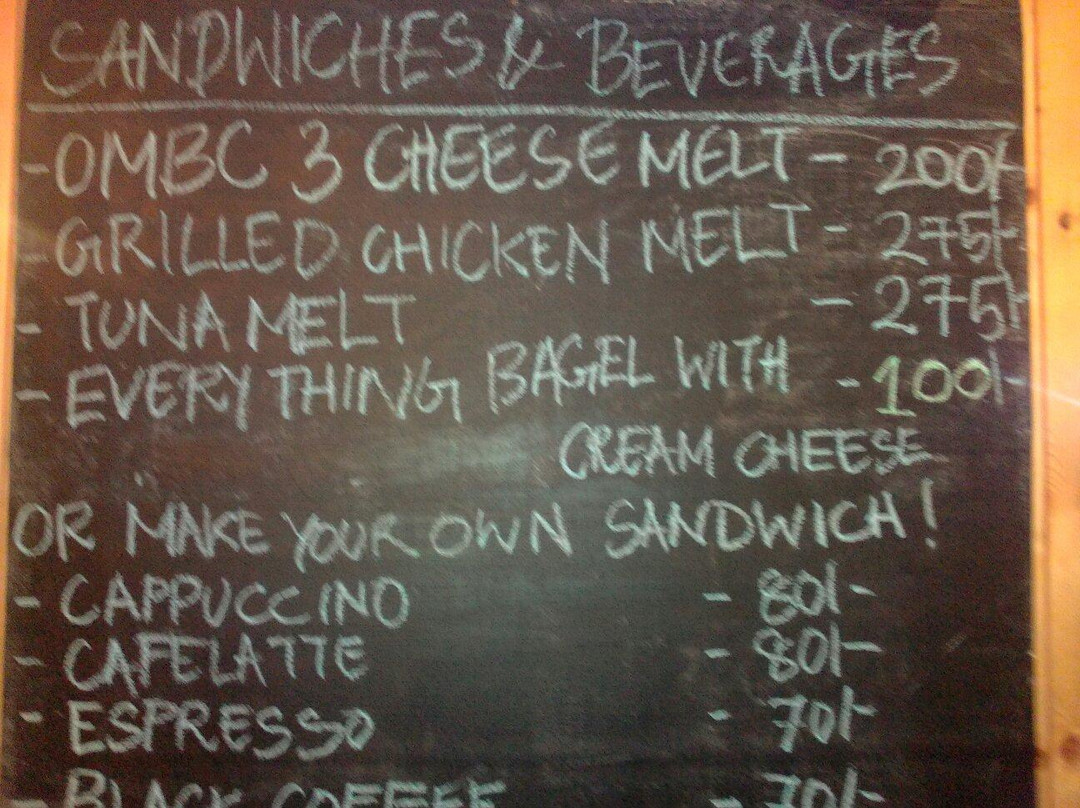 SANDWICHES & BEVERAGES
- OMBC 3 CHEESE MELT - 200/-
- GRILLED CHICKEN MELT - 275/-
- TUNA MELT - 275/-
- EVERYTHING BAGEL WITH - 100/-
CREAM CHEESE
OR MAKE YOUR OWN SANDWICH!
- CAPPUCCINO - 80/-
- CAFELATTE - 80/-
- ESPRESSO - 70/-
- BLACK COFFEE - 70/-